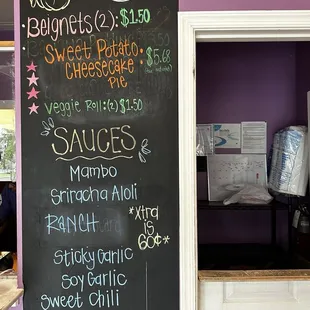 Beignets (2): $1.50
Sweet Potato
Cheesecake
Pie
: $5.68
Veggie Roll: (2) $1.50
SAUCES
Mambo
Sriracha Aioli
RANCH
*Xtra
is
60¢*
Sticky Garlic
Soy Garlic
Sweet Chili